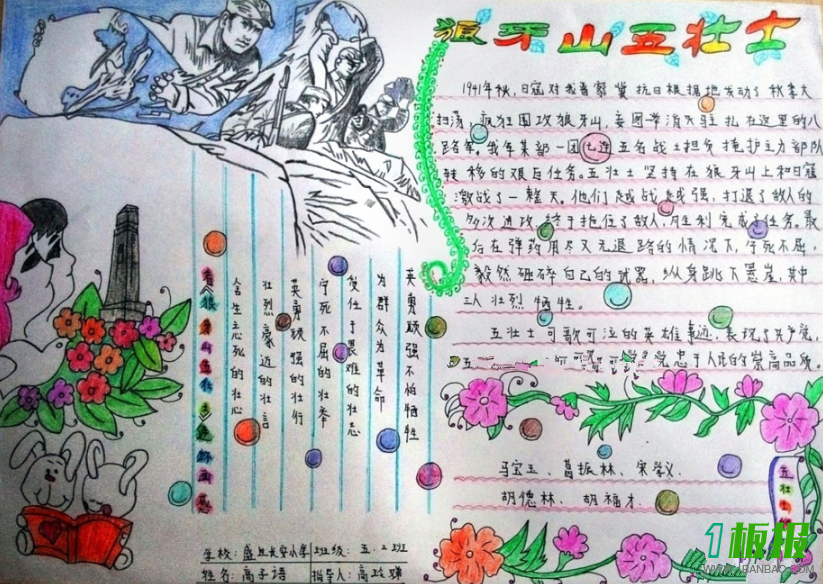 狼牙山五壮士
1941年秋，日寇对我晋察冀抗日根据地发动了秋季大
扫荡，疯狂围攻狼牙山，妄图一带消灭驻扎在这里的八
路军。我军某部一团七连五名战士担负掩护主力部队
转移的艰巨任务。五壮士坚持在狼牙山上和日寇
激战了一整天。他们越战越强，打退了敌人的
多次进攻，终于拖住了敌人，胜利完成了任务。最
后在弹药用尽又无退路的情况下，宁死不屈，
毅然砸碎自己的武器，纵身跳下悬崖，其中
三人壮烈牺牲。
五壮士可歌可泣的英雄事迹，表现了共产党，
五 党忠于人民的崇高品质。
英勇顽强不怕牺牲
为群众为革命
受任于畏难的壮志
宁死不屈的壮举
英勇顽强的壮行
壮烈豪迈的壮言
舍生忘死的壮心
看《狼牙山五壮士》
马宝玉、葛振林、宋学义、
胡德林、胡福才。
五壮士
学校：盛 长安小学 班级：五．2班
姓名：高子语 指导人：高
1板报
WWW.1BANBAO.COM